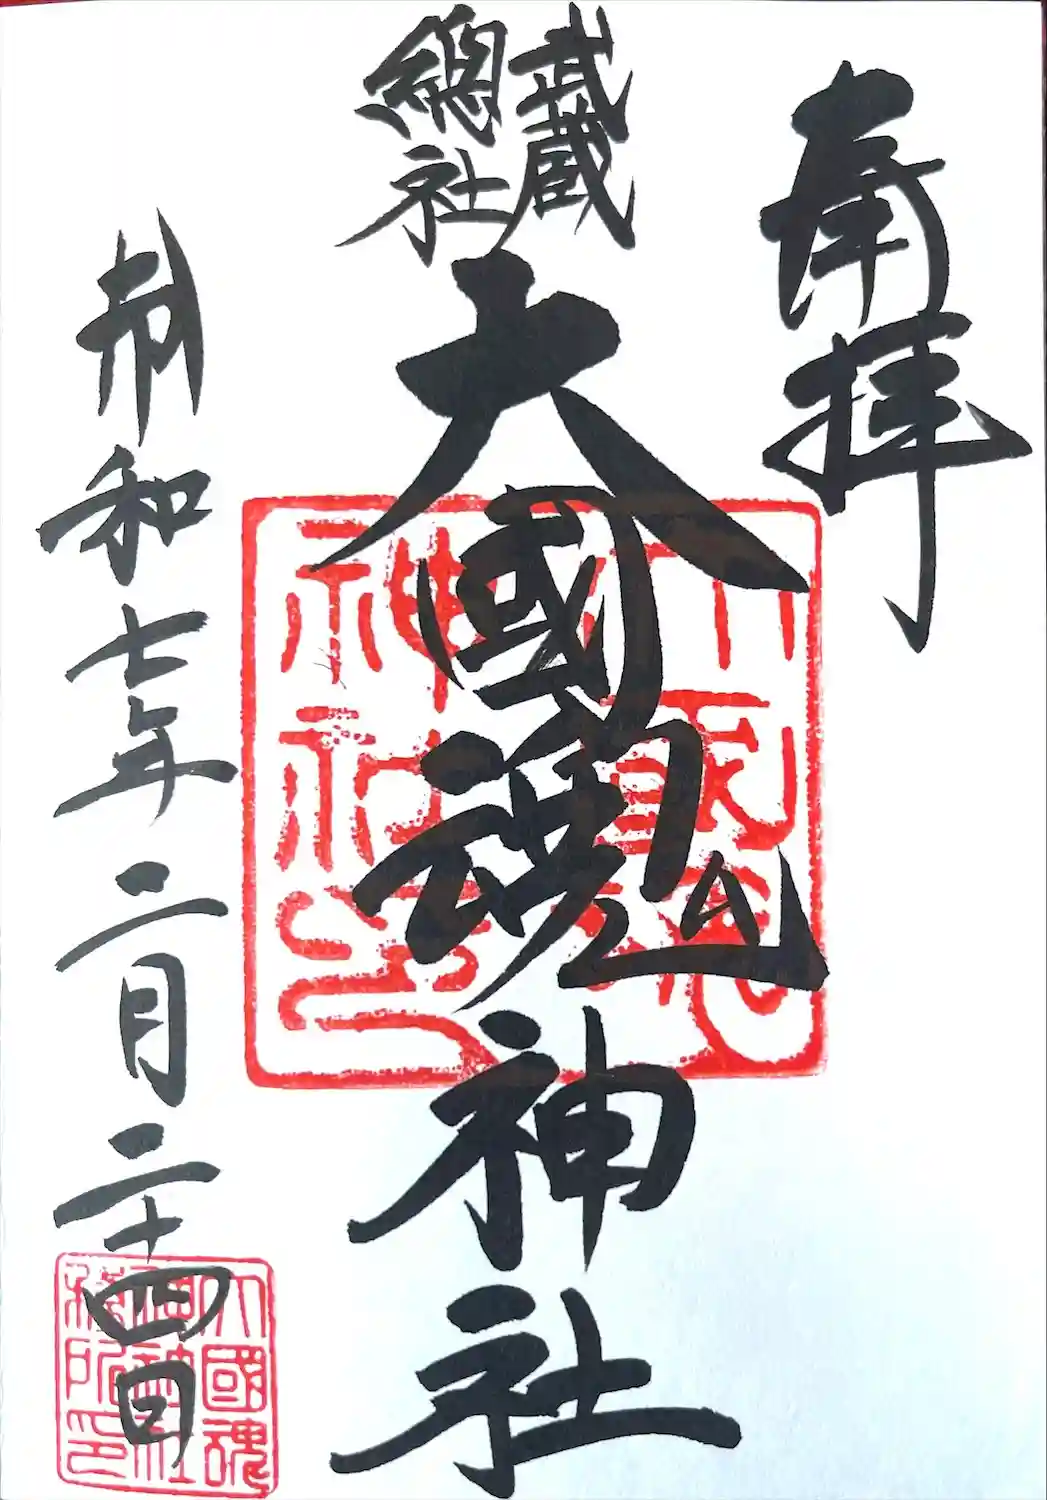 奉拝
武蔵
總社
大國魂神社
大國魂神社印
令和七年二月二十四日
大國魂神社務所印